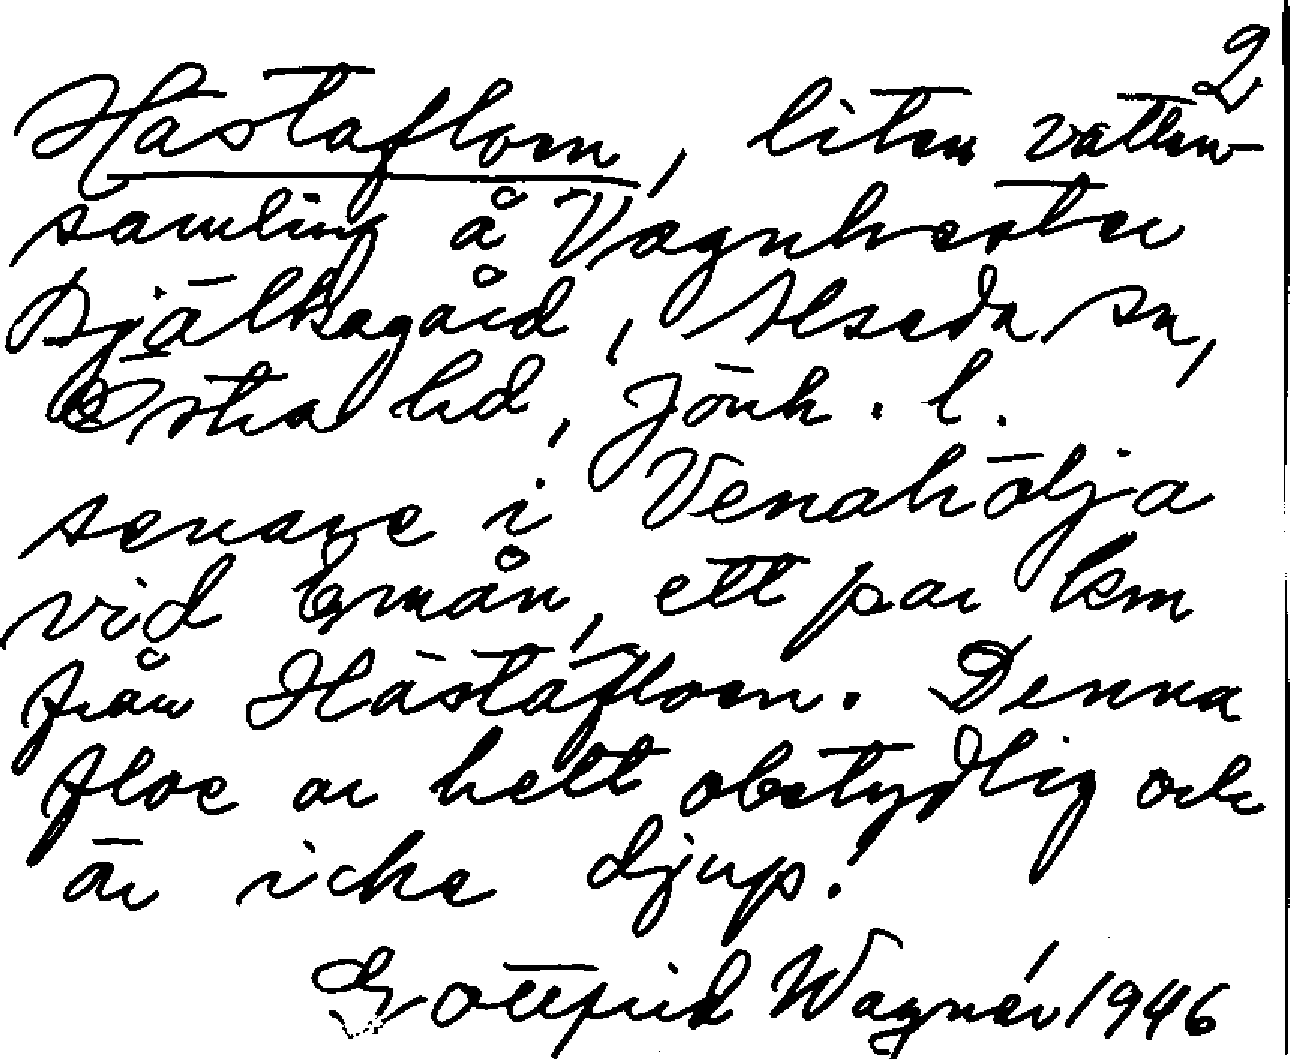 2
Hästafloen, liten vatten-
samling å Vagnhester
Bjälkagård, Alseda sn,
Östra hd, Jönk. l.
senare i Venahölja
vid Emån, ett par km
från Hästafloen. Denna
floe är helt obetydlig och
är icke djup.
Gottfrid Wagnér 1946